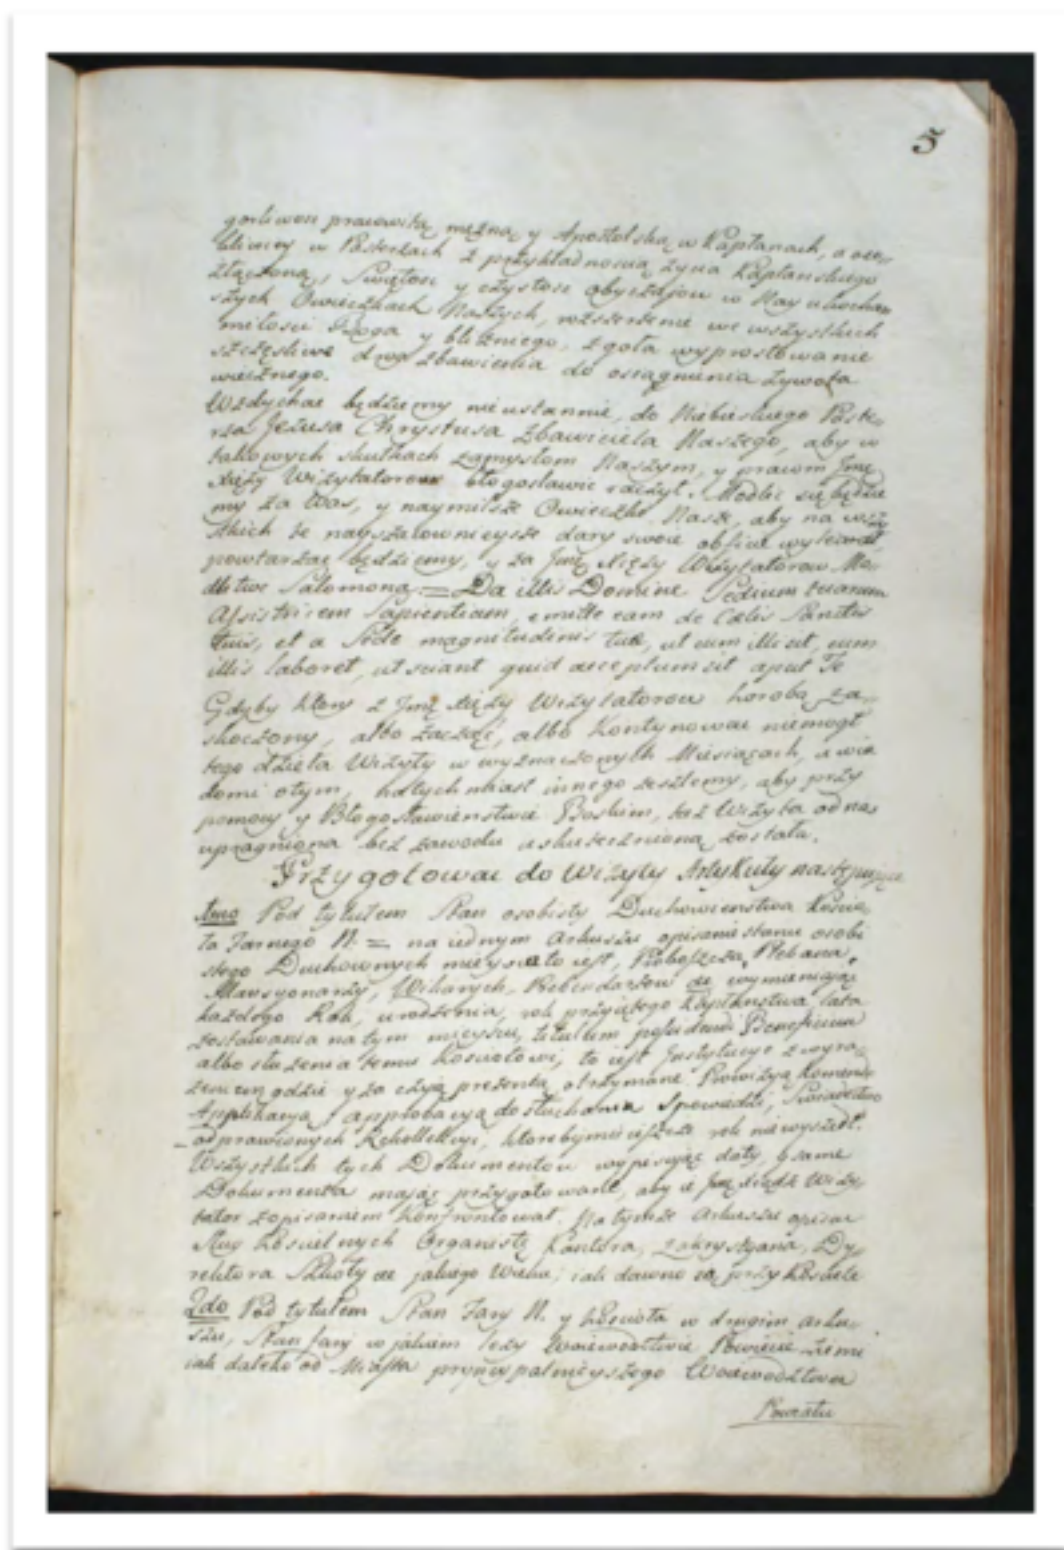 5
gorliwou pracowitą, mężną, y Apostolską w Kapłanach, a oso-
bliwiey w Pasterzach z przykładnością życia Kapłanskiego
złączoną, Swiętosc y czystosc obyczajow w Nayukochan
szych Owieczkach Naszych, rozszerzenie we wszystkich
miłosci Boga y bliźniego, zgoła wyprostowanie
szczęsliwe drog zbawienia do osiągnienia żywota
wiecznego.
Wzdychac będziemy nieustannie do Niebieskiego Paste-
rza Jezusa Chrystusa Zbawiciela Naszego, aby w
takowych skutkach zamysłom Naszym, y pracom Jmę
Xięży Wizytatorow błogosławic raczył. Modlic się będzie
my za Was, y naymilsze Owieczki Nasze, aby na wszy
stkich te nayszacownieysze dary swoie obficie wylewał,
powtarzac będziemy, y za Jmę Xięży Wizytatorow Mo-
dlitwę Salomona. = Da illis Domine Sedium tuarum
Assistricem Sapientiam, emitte eam de Cælis Sanctis
tuis, et a Sede magnitudinis tuæ, ut cum illis sit, cum
illis laboret, ut sciant quid acceptum sit aput Te
Gdyby ktory z Jmę Xięży Wizytatorow horobą za-
skoczony, albo zacząć, albo Kontynowac niemogł
tego dzieła Wizyty w wyznaczonych Miesiącach, uwia
domi otym, natychmiast innego zeszlemy, aby przy
pomocy y Błogosławienstwie Boskim, taż Wizyta od nas
upragniona bez zawodu uskuteczniona została.
Przygotowac do Wizyty Artykuły następujące
1mo Pod tytułem Stan osobisty Duchowienstwa Koscio-
ła Farnego N. = na iednym Arkuszu opisanie stanu osobi
stego Duchownych mieysca to iest, Proboszcza, Plebana,
Mansyonarzy, Wikarych, Rebendarzow &c wymieniając
każdego Rok, urodzenia, rok przyiętego Kapłanstwa, lata
zostawania na tym mieyscu, titulum possidendi Beneficium
albo służenia temu Kosciołowi, to iest Instytucye z wyra-
żeniem gdzie y za czyią prezentą otrzymane Prowizyą Komendę
Applikacyą, approbacyą do słuchania Spowiedzi, Swiadectwo
odprawionych Rekollekcyi, ktorebymu ieszcze rok nie wyszedł.
Wszystkich tych Dokumentow wypisując daty, y same
Dokumenta mając przygotowane, aby ie Jmę Xiądz Wizy-
tator z opisaniem Konfrontował. Na tymże Arkuszu opisac
Sług koscielnych Organistę, Kantora, Zakrystyana, Dy-
rektora Szkoły &c jakiego Wieku; iak dawno są przy Kosciele
2do Pod tytułem Stan Fary N. y kosciola w drugim arku-
szu, Stan fary w jakiem leży Woiewodztwie Powiecie Ziemi
iak daleko od Miasta pryncypalnieyszego Woiewodztwa
Powiatu